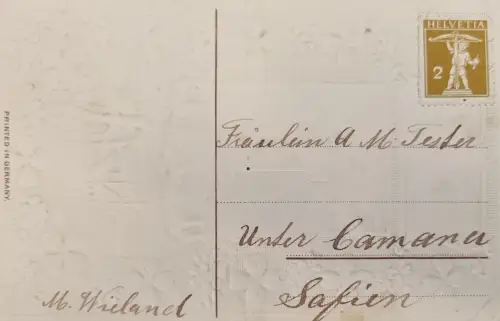 HELVETIA
2
Fräulein A M. Tester
Unter Camana
Safien
M. Wieland
PRINTED IN GERMANY.